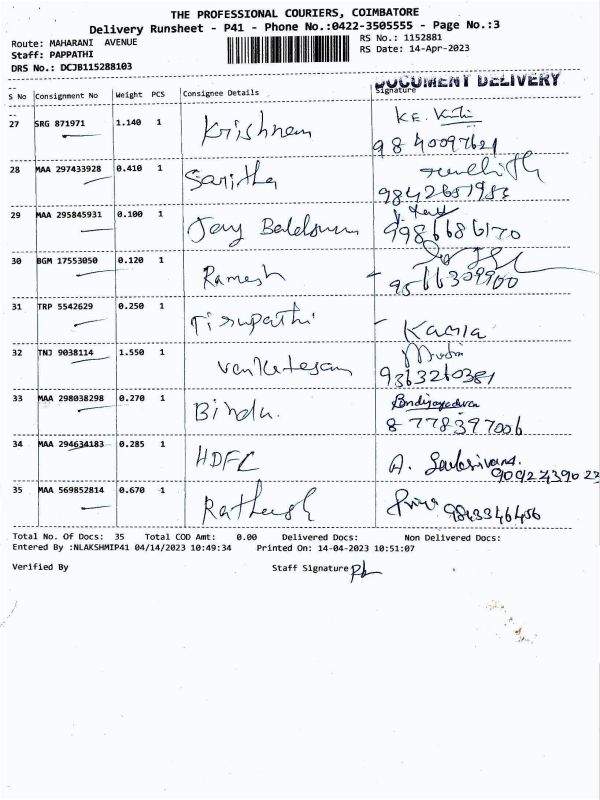 THE PROFESSIONAL COURIERS, COIMBATORE
Delivery Runsheet - P41 - Phone No.:0422-3505555 - Page No.:3
Route: MAHARANI AVENUE
RS No.: 1152881
Staff: PAPPATHI
RS Date: 14-Apr-2023
DRS No.: DCJB115288103
DOCUMENT DELIVERY
S No Consignment No Weight PCS Consignee Details Signature
27 SRG 871971 1.140 1 Krishnan K.E.
9840097621
28 MAA 297433928 0.410 1 Saritha
29 MAA 295845931 0.100 1 Jay
9986686170
30 BGM 17553050 0.120 1 Ramesh
9566309900
31 TRP 5542629 0.250 1 Tirupathi Kamla
32 TNJ 9038114 1.550 1 Venkatesan
9363260381
33 MAA 298038298 0.270 1 Bindu
8778397006
34 MAA 294634183 0.285 1 HDFC A.
9092439023
35 MAA 569852814 0.670 1
9843346456
Total No. Of Docs: 35 Total COD Amt: 0.00 Delivered Docs: Non Delivered Docs:
Entered By :NLAKSHMIP41 04/14/2023 10:49:34 Printed On: 14-04-2023 10:51:07
Verified By Staff Signature